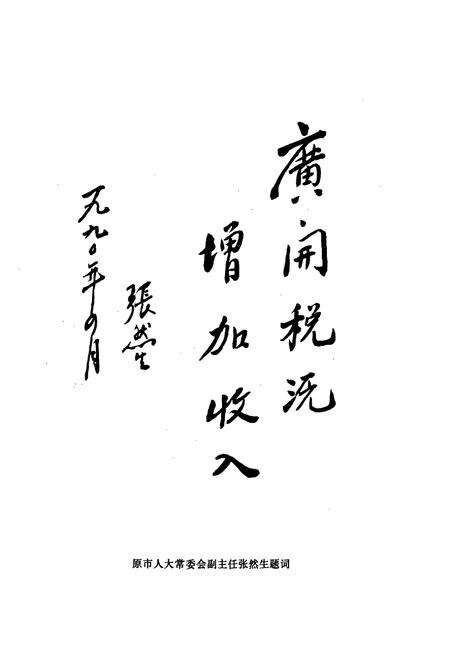 廣開税沅
增加收入
張然生
一九九〇年四月
原市人大常委会副主任张然生题词